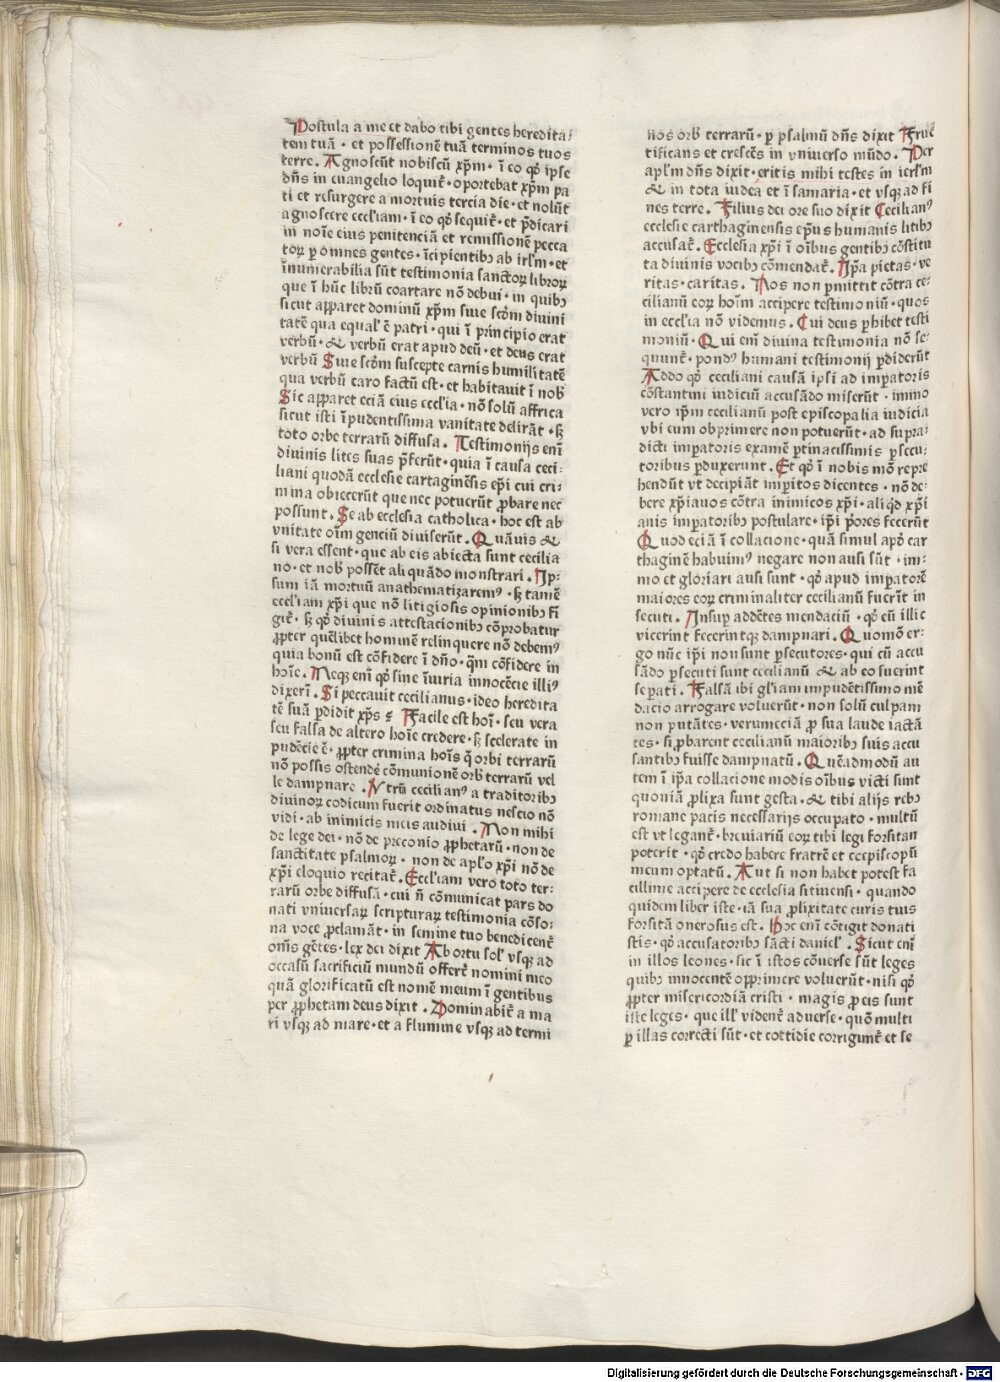 Postula a me et dabo tibi gentes heredita⸗
tem tuā · et possessionē tuā terminos tuos
terre. Agnoscūt nobiscū xp̄m · ī eo qꝺ ipse
dn̄s in euangelio loquit᷑ · oportebat xp̄m pa
ti et resurgere a mortuis tercia die · et nolūt
agnoscere eccl'iam · ī eo qꝺ sequit᷑ · et p̄dicari
in noīe eius penitenciā et remissionē pecca
toꝝ ꝑ omnes gentes · īcipientibꝰ ab irl'm · et
īnumerabilia sūt testimonia sanctoꝝ libroꝝ
que ī hūc librū coartare nō debui · in quibꝫ
sicut apparet dominū xp̄m siue scd̄m diuini
tatē qua equal' ē patri · qui ī principio erat
verbū · & verbū erat apud deū · et deus erat
verbū Siue scd̄m suscepte carnis humilitatē
qua verbū caro factū est · et habitauit ī nob̄
Sic apparet eciā eius eccl'ia · nō solū affrica
sicut isti īpudentissima vanitate delirāt · sꝫ
toto orbe terrarū diffusa. Testimonijs enī
diuinis lites suas p̄ferūt · quia ī causa ceci⸗
liani quodā ecclesie cartaginēsis ep̄i cui cri⸗
mina obiecerūt que nec potuerūt ꝓbare nec
possunt. Se ab ecclesia catholica · hoc est ab
vnitate oīm genciū diuiserūt. Quāuis &
si vera essent · que ab eis abiecta sunt cecilia
no · et nob̄ possēt aliquādo monstrari. Ip⸗
sum iā mortuū anathematizaremꝰ · sꝫ tamē
eccl'iam xp̄i que nō litigiosis opinionibꝫ fī
git᷑ · sꝫ qꝺ diuinis attestacionibꝫ cōprobatur
ꝓpter quēlibet hominē relinquere nō debemꝰ
quia bonū est cōfidere ī dn̄o · q̄m cōfidere in
hoīe. Neqꝫ enī qꝺ sine īiuria innocēcie illiꝰ
dixerī. Si peccauit cecilianus · ideo heredita
tē suā ꝑdidit xp̄s ? Facile est hoī · seu vera
seu falsa de altero hoīe credere · sꝫ scelerate in
pudēcie ē · ꝓpter crimina hoīs q̄ orbi terrarū
nō possis ostendē cōmunionē orb̄ terrarū vel
le dampnare. Vtrū cecilianꝰ a traditoribꝫ
diuinoꝝ codicum fuerit ordinatus nescio nō
vidi · ab inimicis meis audiui. Non mihi
de lege dei · nō de preconio ꝓphetarū · non de
sanctitate psalmoꝝ · non de apl'o xp̄i nō de
xp̄i eloquio recitat᷑. Eccl'iam vero toto ter⸗
rarū orbe diffusā · cui n̄ cōmunicat pars do
nati vniuersaꝝ scripturaꝝ testimonia cōso⸗
na voce ꝓclamāt · in semine tuo benedicent᷑
om̄s gētes · lex dei dixit Ab ortu sol' vsqꝫ ad
occasū sacrificiū mundū offert᷑ nomini meo
quā glorificatū est nomē meum ī gentibus
per ꝓphetam deus dixit. Dominabit᷑ a ma
ri vsqꝫ ad mare · et a flumine vsqꝫ ad termi
nos orb̄ terrarū · ꝑ psalmū dn̄s dixit Fruc
tificans et crescēs in vniuerso mūdo. Per
apl'm dn̄s dixit · eritis mihi testes in ierl'm
& in tota iudea et ī samaria · et vsqꝫ ad fi
nes terre. Filius dei ore suo dixit Cecilianꝰ
ecclesie carthaginensis ep̄us humanis litibꝫ
accusat᷑. Ecclesia xp̄i ī oībus gentibꝫ cōstitu
ta diuinis vocibꝫ cōmendat᷑. Ip̄a pietas · ve
ritas · caritas. Nos non ꝑmittit cōtra ce⸗
cilianū eoꝝ hoīm accipere testimoniū · quos
in eccl'ia nō videmus. Cui deus ꝑhibet testi
moniū. Qui enī diuina testimonia nō se⸗
quunt᷑ · pondꝰ humani testimonij ꝑdiderūt
Addo qꝺ ceciliani causā ipsi ad imꝑatoris
cōstantini iudiciū accusādo miserūt · immo
vero ip̄m cecilianū post episcopalia iudicia
vbi eum obprimere non potuerūt · ad supra⸗
dicti imꝑatoris examē ꝑtinacissimis ꝑsecu⸗
toribus ꝑduxerunt. Et qꝺ ī nobis mō repre
hendūt vt decipiāt imꝑitos dicentes · nō de⸗
bere xp̄iauos cōtra inimicos xp̄i · aliqꝺ xp̄i
anis imꝑatoribꝫ postulare · ip̄i p̄ores fecerūt
Quod eciā ī collacione · quā simul apꝺ car
thaginē habuimꝰ negare non ausi sūt · im⸗
mo et gloriari ausi sunt · qꝺ apud imꝑatorē
maiores eoꝝ criminaliter cecilianū fuerīt in
secuti. Insup addētes mendaciū · qꝺ eū illic
vicerint fecerintqꝫ dampnari. Quomō er⸗
go nūc ip̄i non sunt ꝑsecutores · qui cū accu
sādo ꝑsecuti sunt cecilianū & ab eo suerint
seꝑati. Falsā ibi gl'iam impudētissimo mē
dacio arrogare voluerūt · non solū culpam
non putātes · verumeciā ꝓ sua laude iactā
tes · si ꝓbarent cecilianū maioribꝫ suis accu
santibꝫ fuisse dampnatū. Quēadmodū au
tem ī ip̄a collacione modis oībus victi sunt
quoniā ꝓlixa sunt gesta · & tibi alijs rebꝫ
romane pacis necessarijs occupato · multū
est vt legant᷑ · breuiariū eoꝝ tibi legi forsitan
poterit · qꝺ credo habere fratrē et coepiscopū
meum optatū. Aut si non habet potest fa
cillime accipere de ecclesia sitiuensi · quando
quidem liber iste · iā sua ꝓlixitate curis tuis
forsitā onerosus est. Hoc enī cōtigit donati
stis · qꝺ accusatoribꝫ sācti daniel'. Sicut enī
in illos leones · sic ī istos cōuerse sūt leges
quibꝫ innocentē opprimere voluerūt · nisi qꝺ
ꝓpter misericordiā cristi · magis ꝓ eis sunt
iste leges · que ill' vident᷑ aduerse · quō multi
ꝑ illas correcti sūt · et cottidie corrigunt᷑ et se
Digitalisierung gefördert durch die Deutsche Forschungsgemeinschaft · DFG